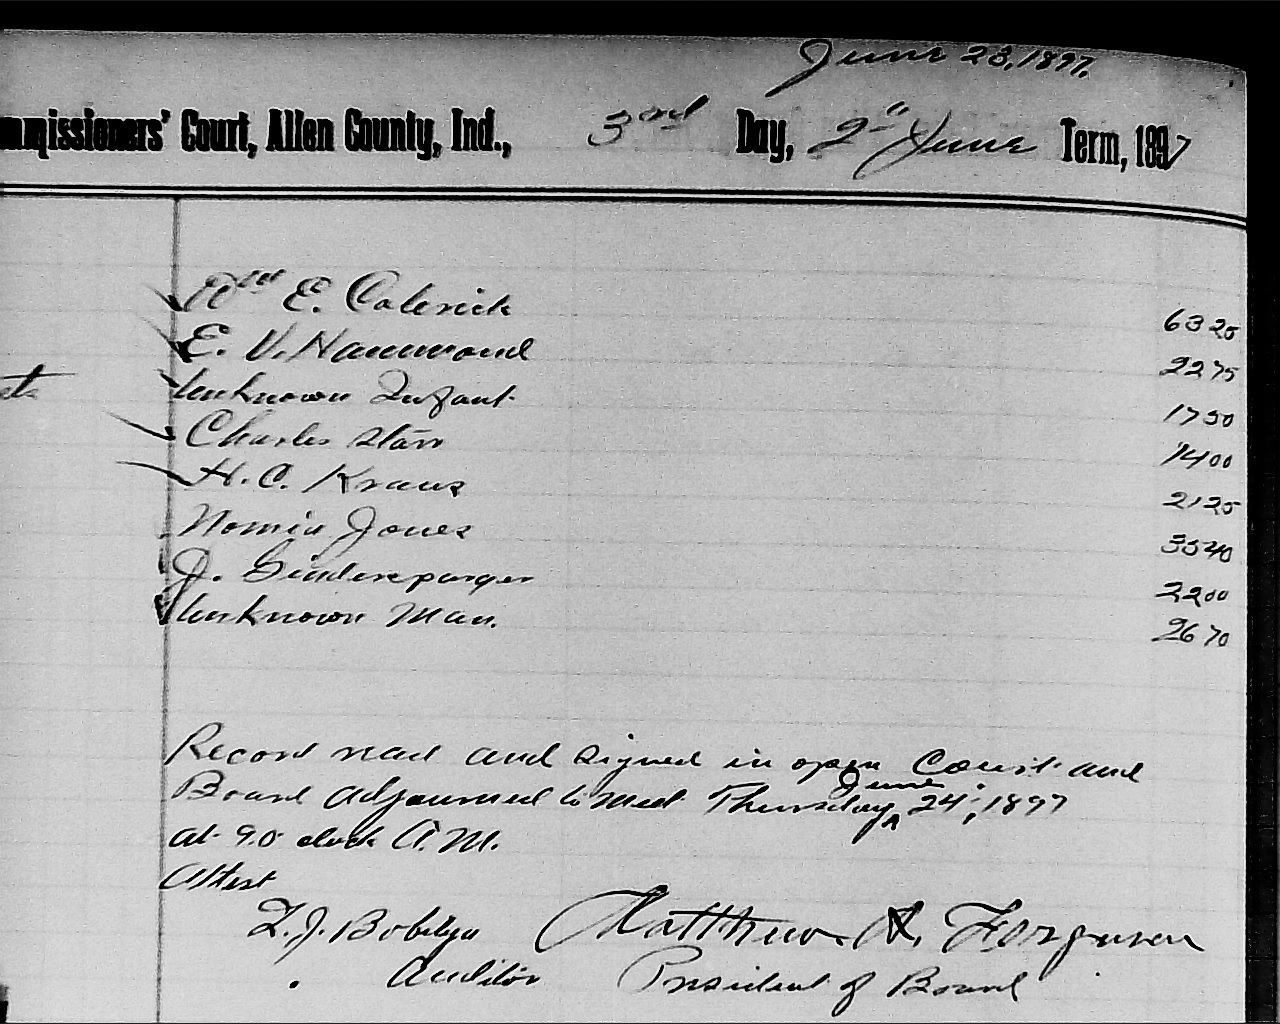 June 23, 1897.
mmissioners' Court, Allen County, Ind., 3rd Day, 2" June Term, 1897
Wm E. Colerick 63 20
E. V. Hammond 22 75
Unknown Infant 17 50
Charles Starr 14 00
H. C. Kraus 21 25
Jones 35 40
J. 22 00
Unknown Man. 26 70
Record read and signed in open Court and
Board adjourned to meet Thursday June 24", 1897
at 9.0 clock A.M.
Attest
Matthew A. Ferguson
Auditor President of Board